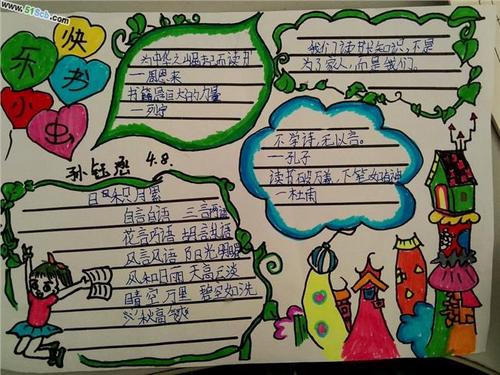 www.51Scb.com
快
乐
书
小
虫
为中华之崛起而读书
—周恩来
书籍是巨大的力量
—列宁
我们读书求知识,不是
为了家人,而是我们。
不学诗,无以言。
—孔子
读书破万卷,下笔如有神
—杜甫
孙钰
4.8.
日积月累
自言自语 三言两语
花言巧语 胡言乱语
风言风语 阳光明媚
风和日丽 天高云淡
晴空万里 碧空如洗
秋高气爽